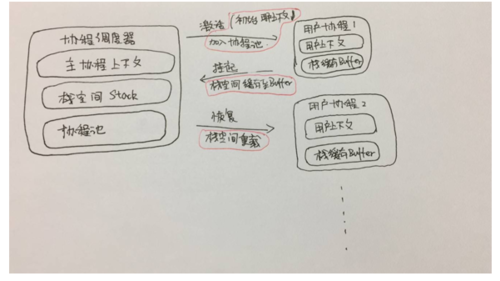 协程调度器
主协程上下文
栈空间 Stock
协程池
激活(初始化上下文)
加入协程池
挂起
栈空间缓存至Buffer
恢复
栈空间重载
用户协程1
用户上下文
栈缓存Buffer
用户协程2
用户上下文
栈缓存Buffer